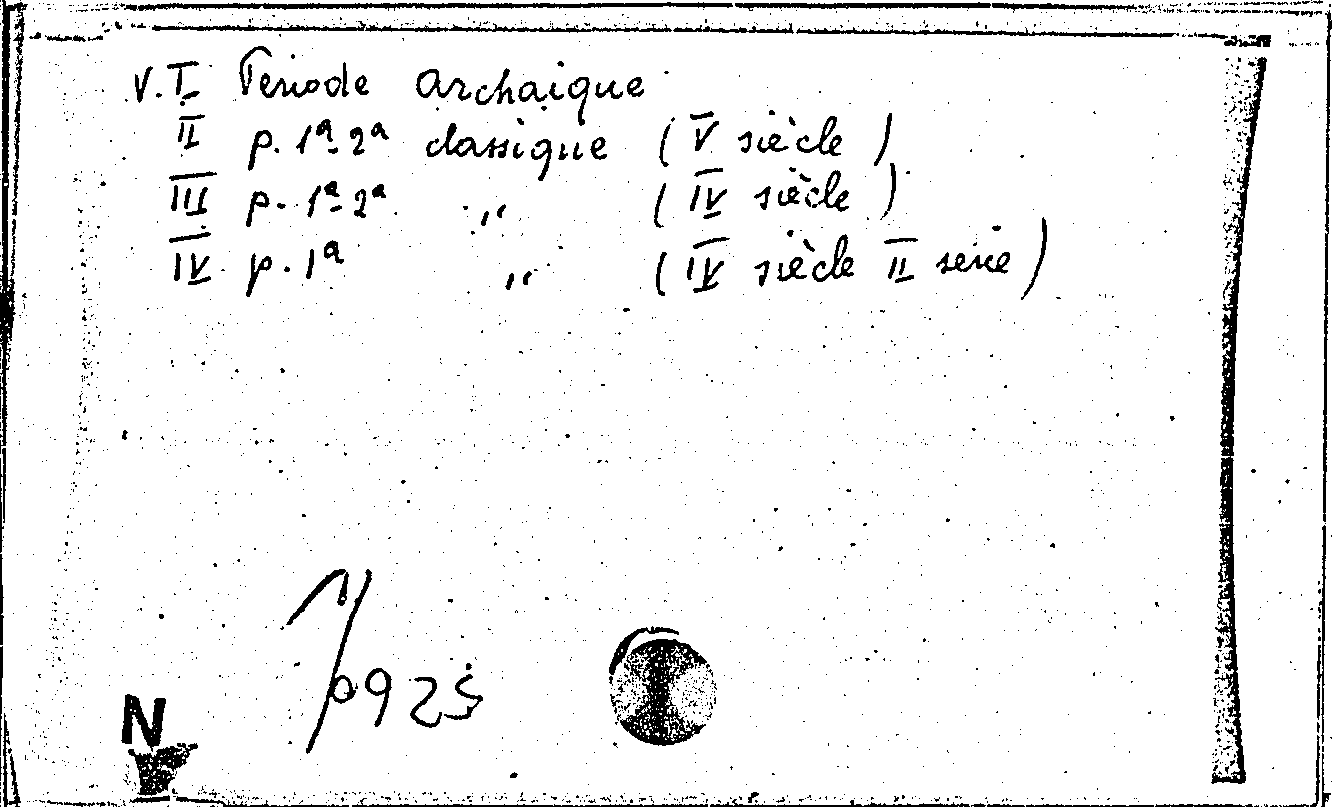 V. I Periode archaique
II p. 1ª-2ª classique (V siècle)
III p. 1ª-2ª " (IV siècle)
IV p. 1ª " (IV siècle II serie)
0925
N